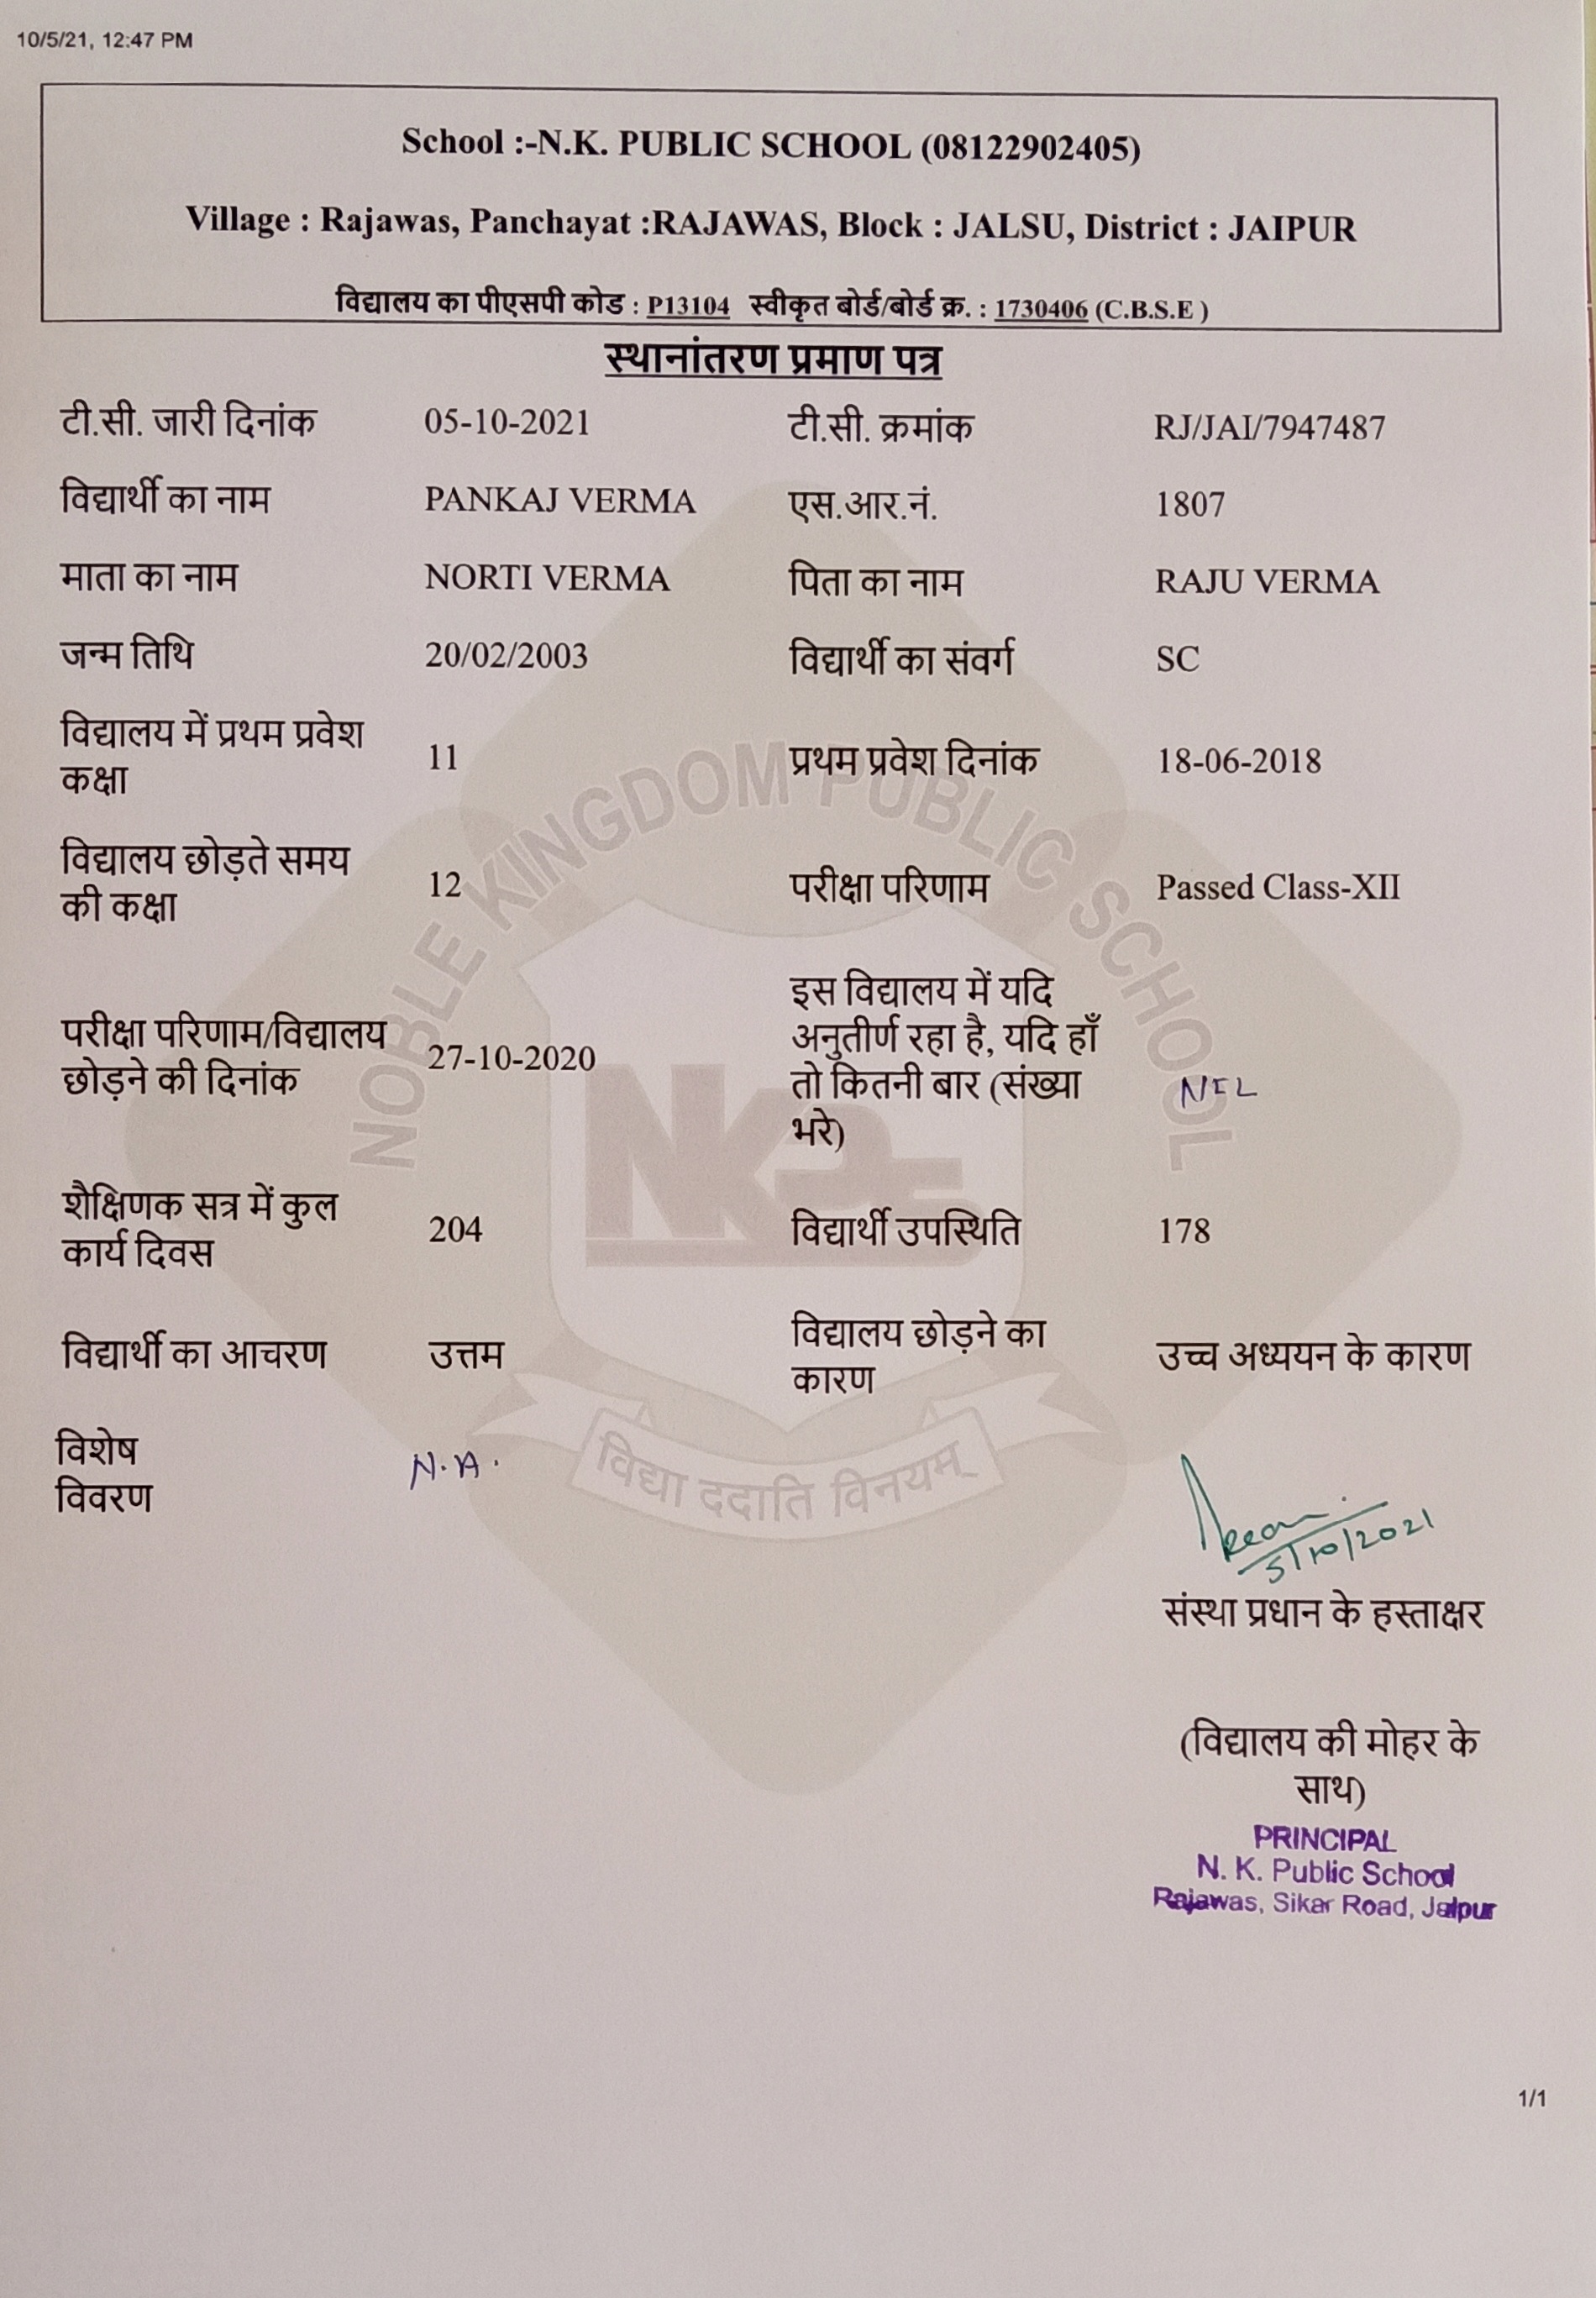 10/5/21, 12:47 PM
School :-N.K. PUBLIC SCHOOL (08122902405)
Village : Rajawas, Panchayat :RAJAWAS, Block : JALSU, District : JAIPUR
विद्यालय का पीएसपी कोड : P13104 स्वीकृत बोर्ड/बोर्ड क्र. : 1730406 (C.B.S.E )
स्थानांतरण प्रमाण पत्र
टी.सी. जारी दिनांक 05-10-2021 टी.सी. क्रमांक RJ/JAI/7947487
विद्यार्थी का नाम PANKAJ VERMA एस.आर.नं. 1807
माता का नाम NORTI VERMA पिता का नाम RAJU VERMA
जन्म तिथि 20/02/2003 विद्यार्थी का संवर्ग SC
विद्यालय में प्रथम प्रवेश
कक्षा
11
प्रथम प्रवेश दिनांक 18-06-2018
विद्यालय छोड़ते समय
की कक्षा
12
परीक्षा परिणाम Passed Class-XII
परीक्षा परिणाम/विद्यालय
छोड़ने की दिनांक
27-10-2020
इस विद्यालय में यदि
अनुतीर्ण रहा है, यदि हाँ
तो कितनी बार (संख्या
भरे)
NIL
शैक्षिणक सत्र में कुल
कार्य दिवस
204
विद्यार्थी उपस्थिति 178
विद्यार्थी का आचरण उत्तम
विद्यालय छोड़ने का
कारण
उच्च अध्ययन के कारण
विशेष
विवरण
N.A.
5/10/2021
संस्था प्रधान के हस्ताक्षर
(विद्यालय की मोहर के
साथ)
PRINCIPAL
N. K. Public School
Rajawas, Sikar Road, Jaipur
NOBLE KINGDOM PUBLIC SCHOOL
NKPS
विद्या ददाति विनयम्
1/1